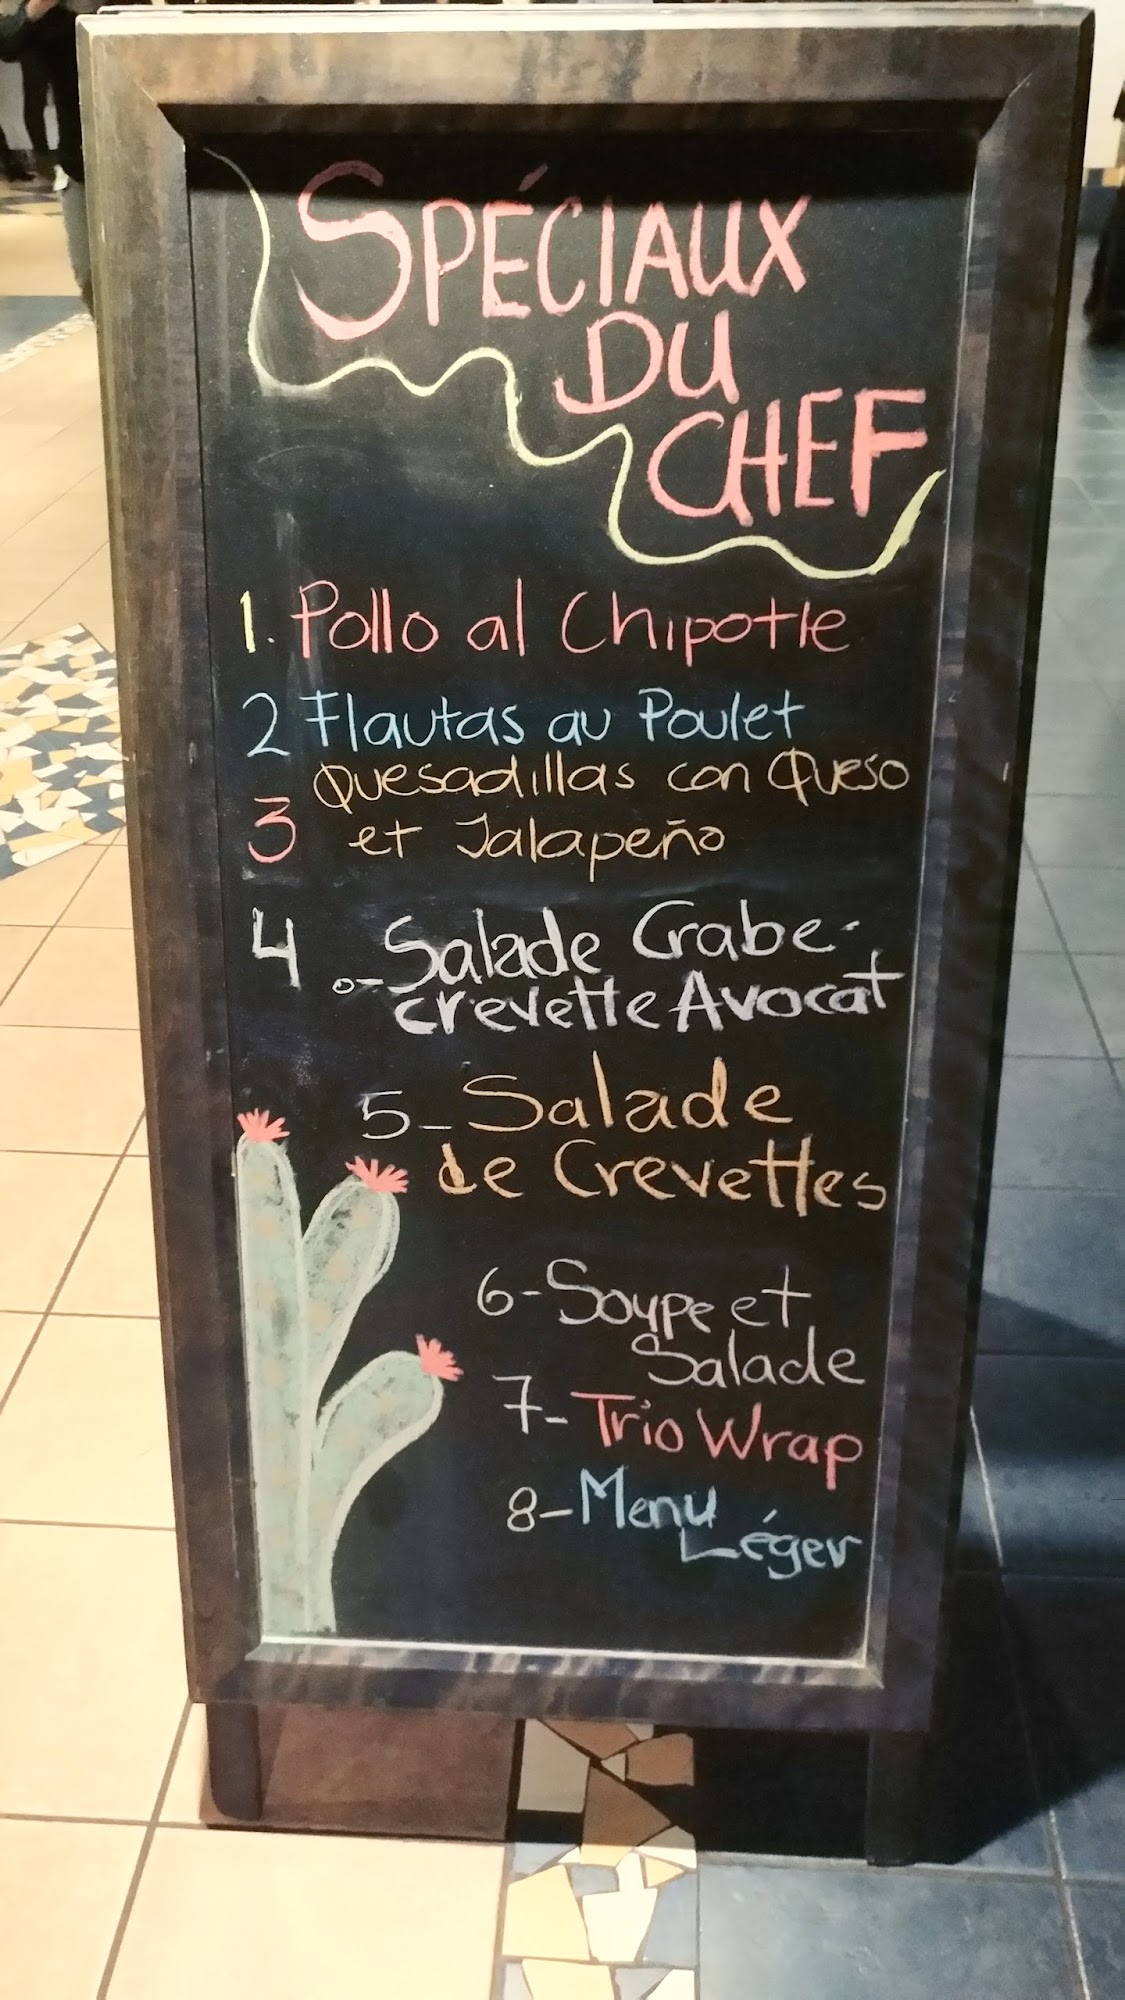 SPÉCIAUX
DU
CHEF
1. Pollo al Chipotle
2 Flautas au Poulet
3 Quesadillas con Queso
et Jalapeño
4.-Salade Crabe-
crevette Avocat
5-Salade
de Crevettes
6-Soupe et
Salade
7-Trio Wrap
8-Menu
Léger